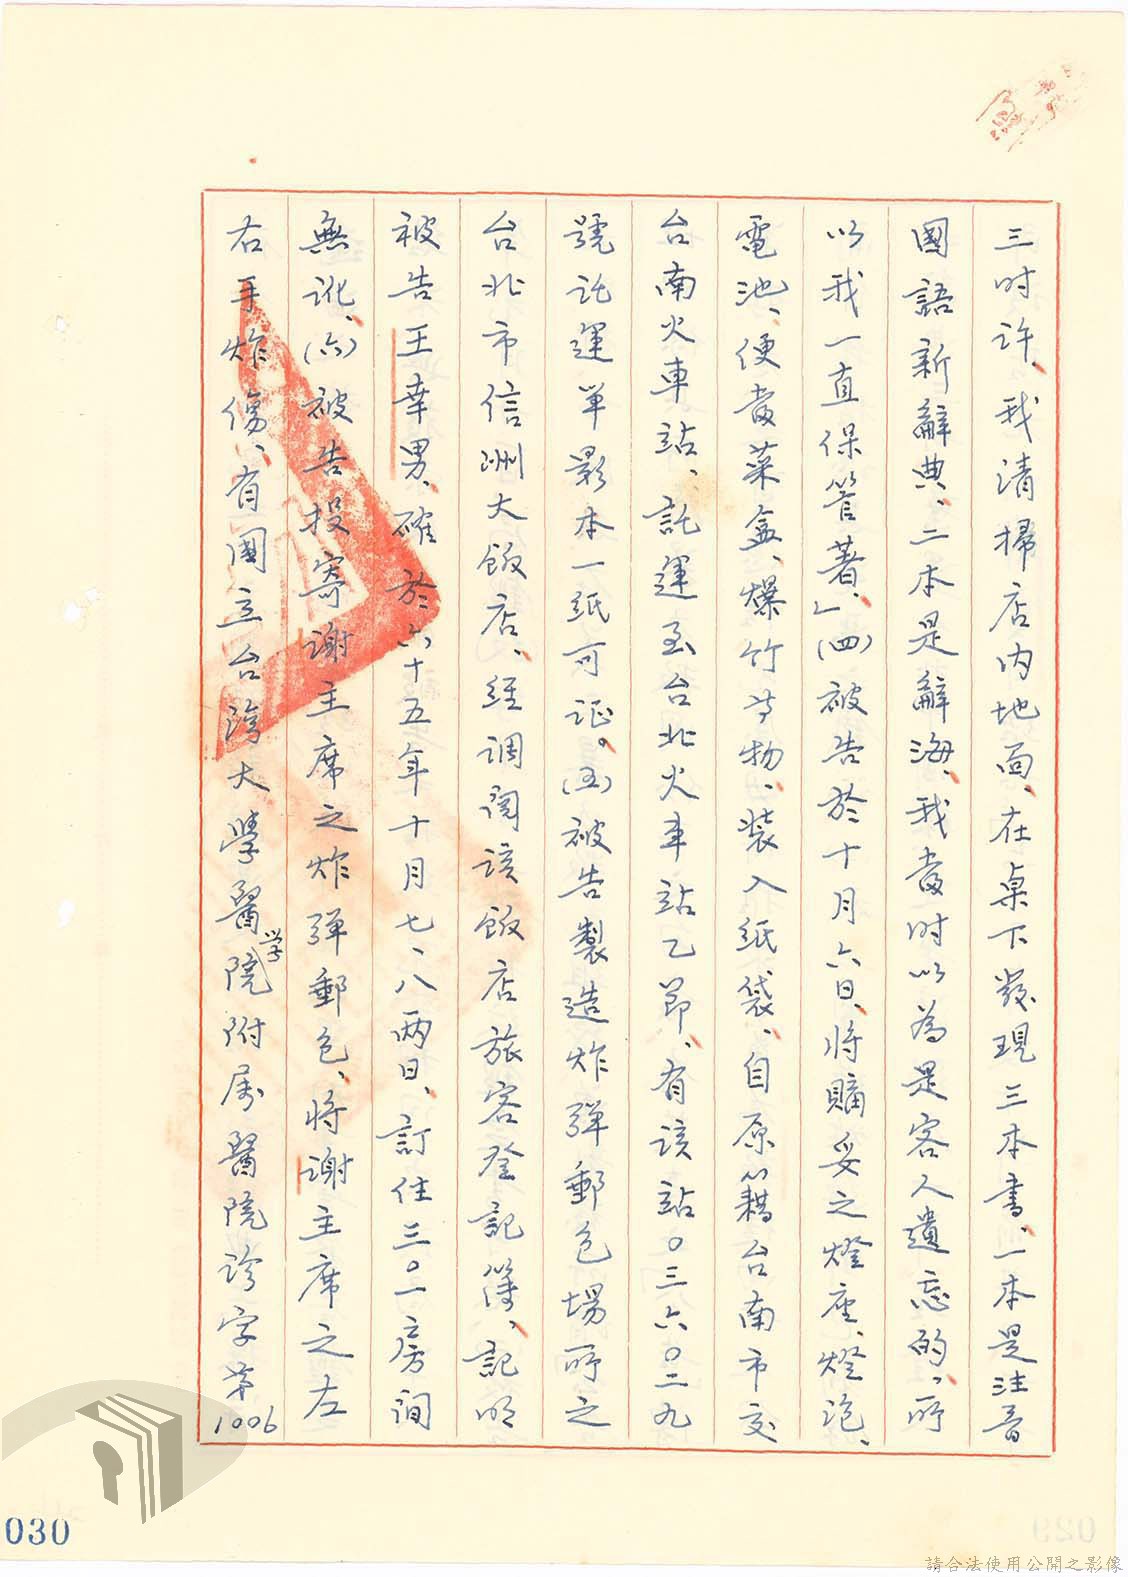 三时许、我清掃店内地面、在桌下發現三本書、一本是注音
國語新辭典、二本是辭海、我當时以為是客人遺忘的、所
以我一直保管著、」(四)被告於十月六日、将購妥之燈座、燈泡、
電池、便當菜盒、爆竹等物、装入紙袋、自原籍台南市交
台南火車站、託運至台北火車站乙節、有该站〇三六〇二九
號託運单影本一紙可証。(五)被告製造炸弹郵包場所之
台北市信洲大飯店、經調閱该飯店旅客登記簿、記明
被告王幸男、確於六十五年十月七、八两日、訂住三〇一房间
無訛、(六)被告投寄谢主席之炸弹郵包、将谢主席之左
右手炸傷、有國立台湾大學醫學院附属醫院診字第1006
030
029
請合法使用公開之影像